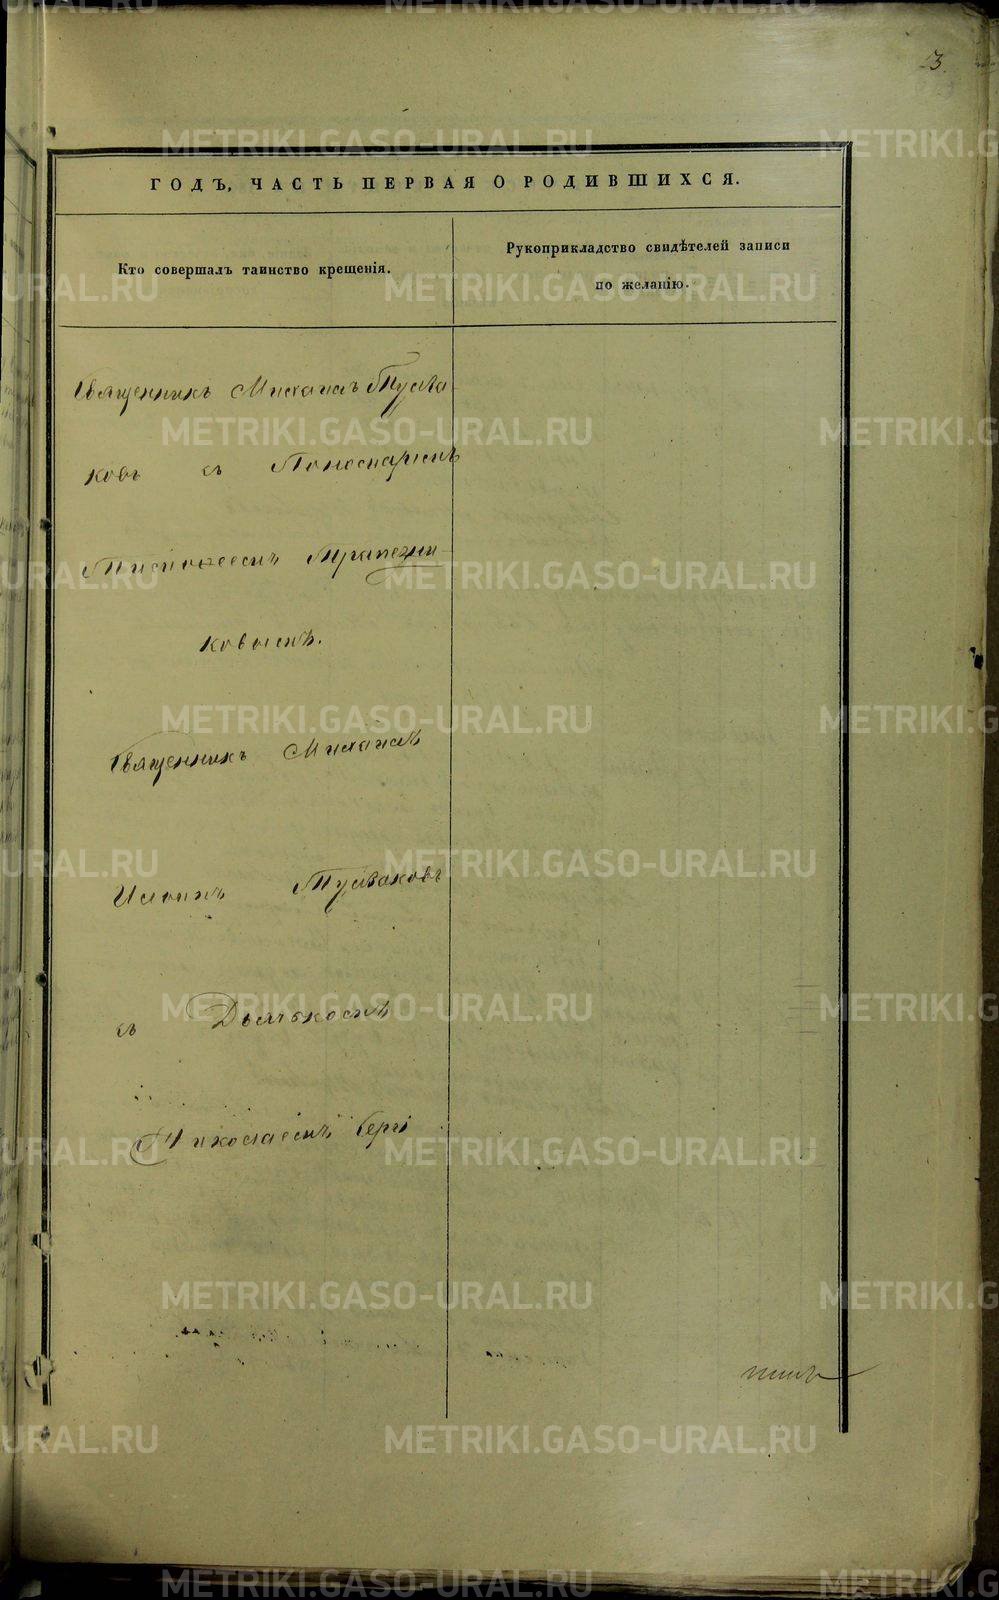 3
ГОДЪ, ЧАСТЬ ПЕРВАЯ О РОДИВШИХСЯ.
Кто совершалъ таинство крещенія.
Рукоприкладство свидѣтелей записи
по желанію.
Священникъ Михаилъ
ковъ съ Пономаремъ
Трапезни-
ковымъ.
Священникъ Михаилъ
съ Дьячкомъ
Николаемъ
METRIKI.GASO-URAL.RU